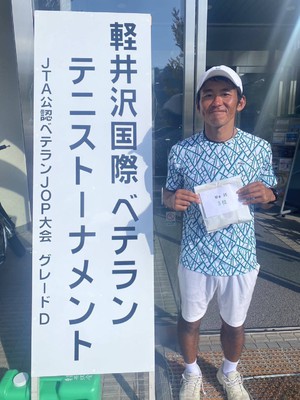 軽井沢国際ベテラン
テニストーナメント
JTA公認ベテランJOP大会 グレードD